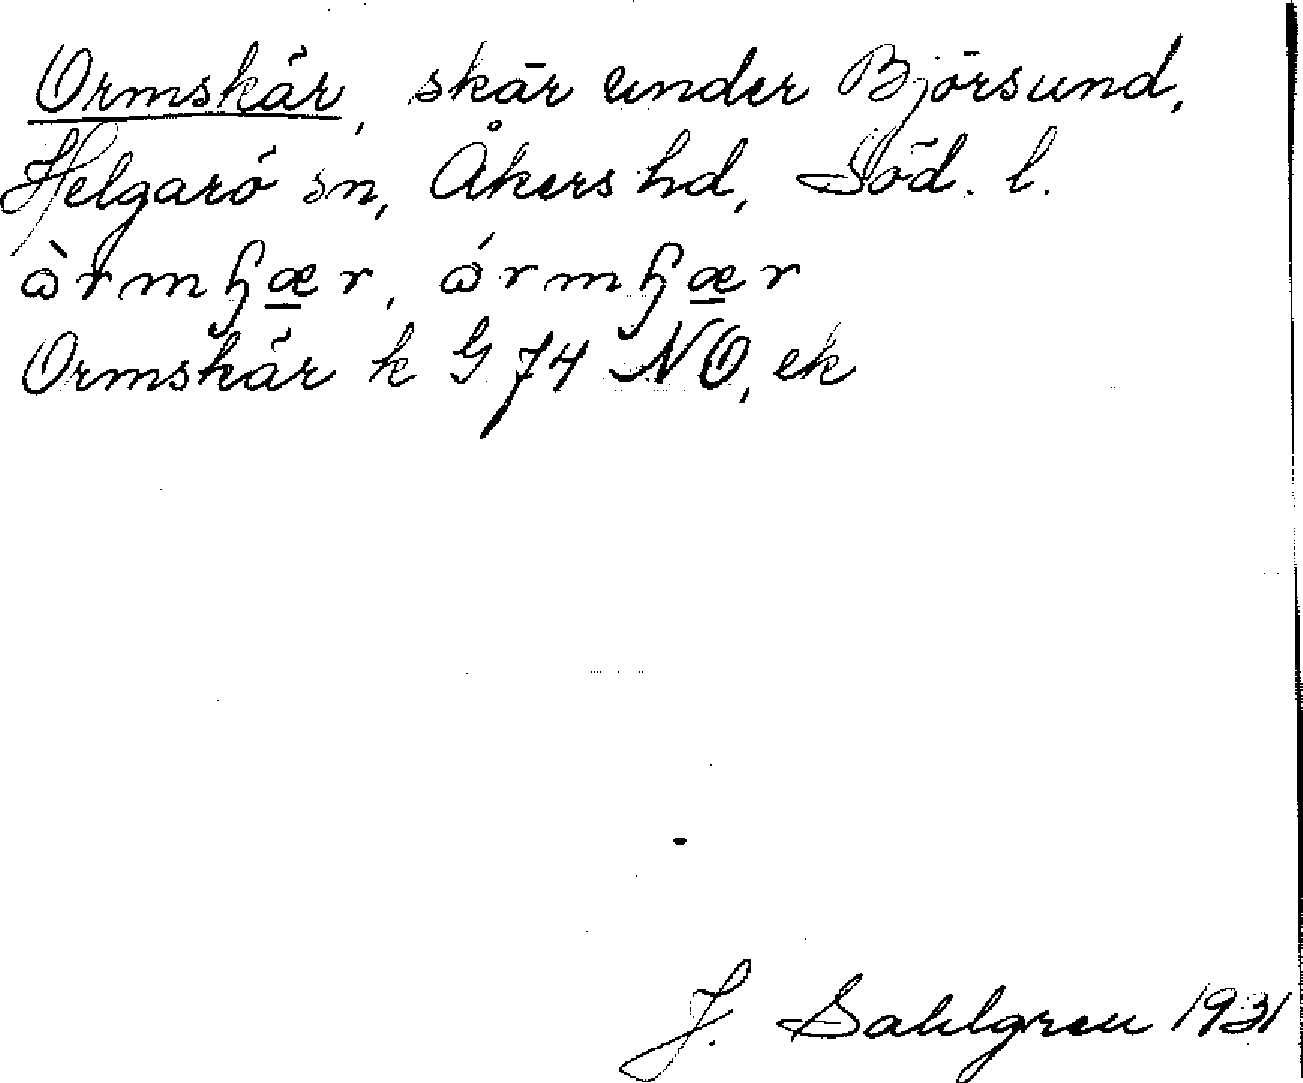 Ormskär, skär under Björsund,
Helgarö sn, Åkers hd, Söd. l.
ὼrmɧæ̱r, ώrmɧæ̱r
Ormskär k G 74 NO, ek
J. Sahlgren 1931